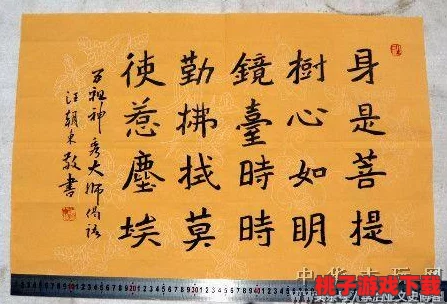 身是菩提
樹心如明
鏡臺時時
勤拂拭莫
使惹塵埃
祖神秀大師偈語
汪朝東敬書
桃子游戏下载